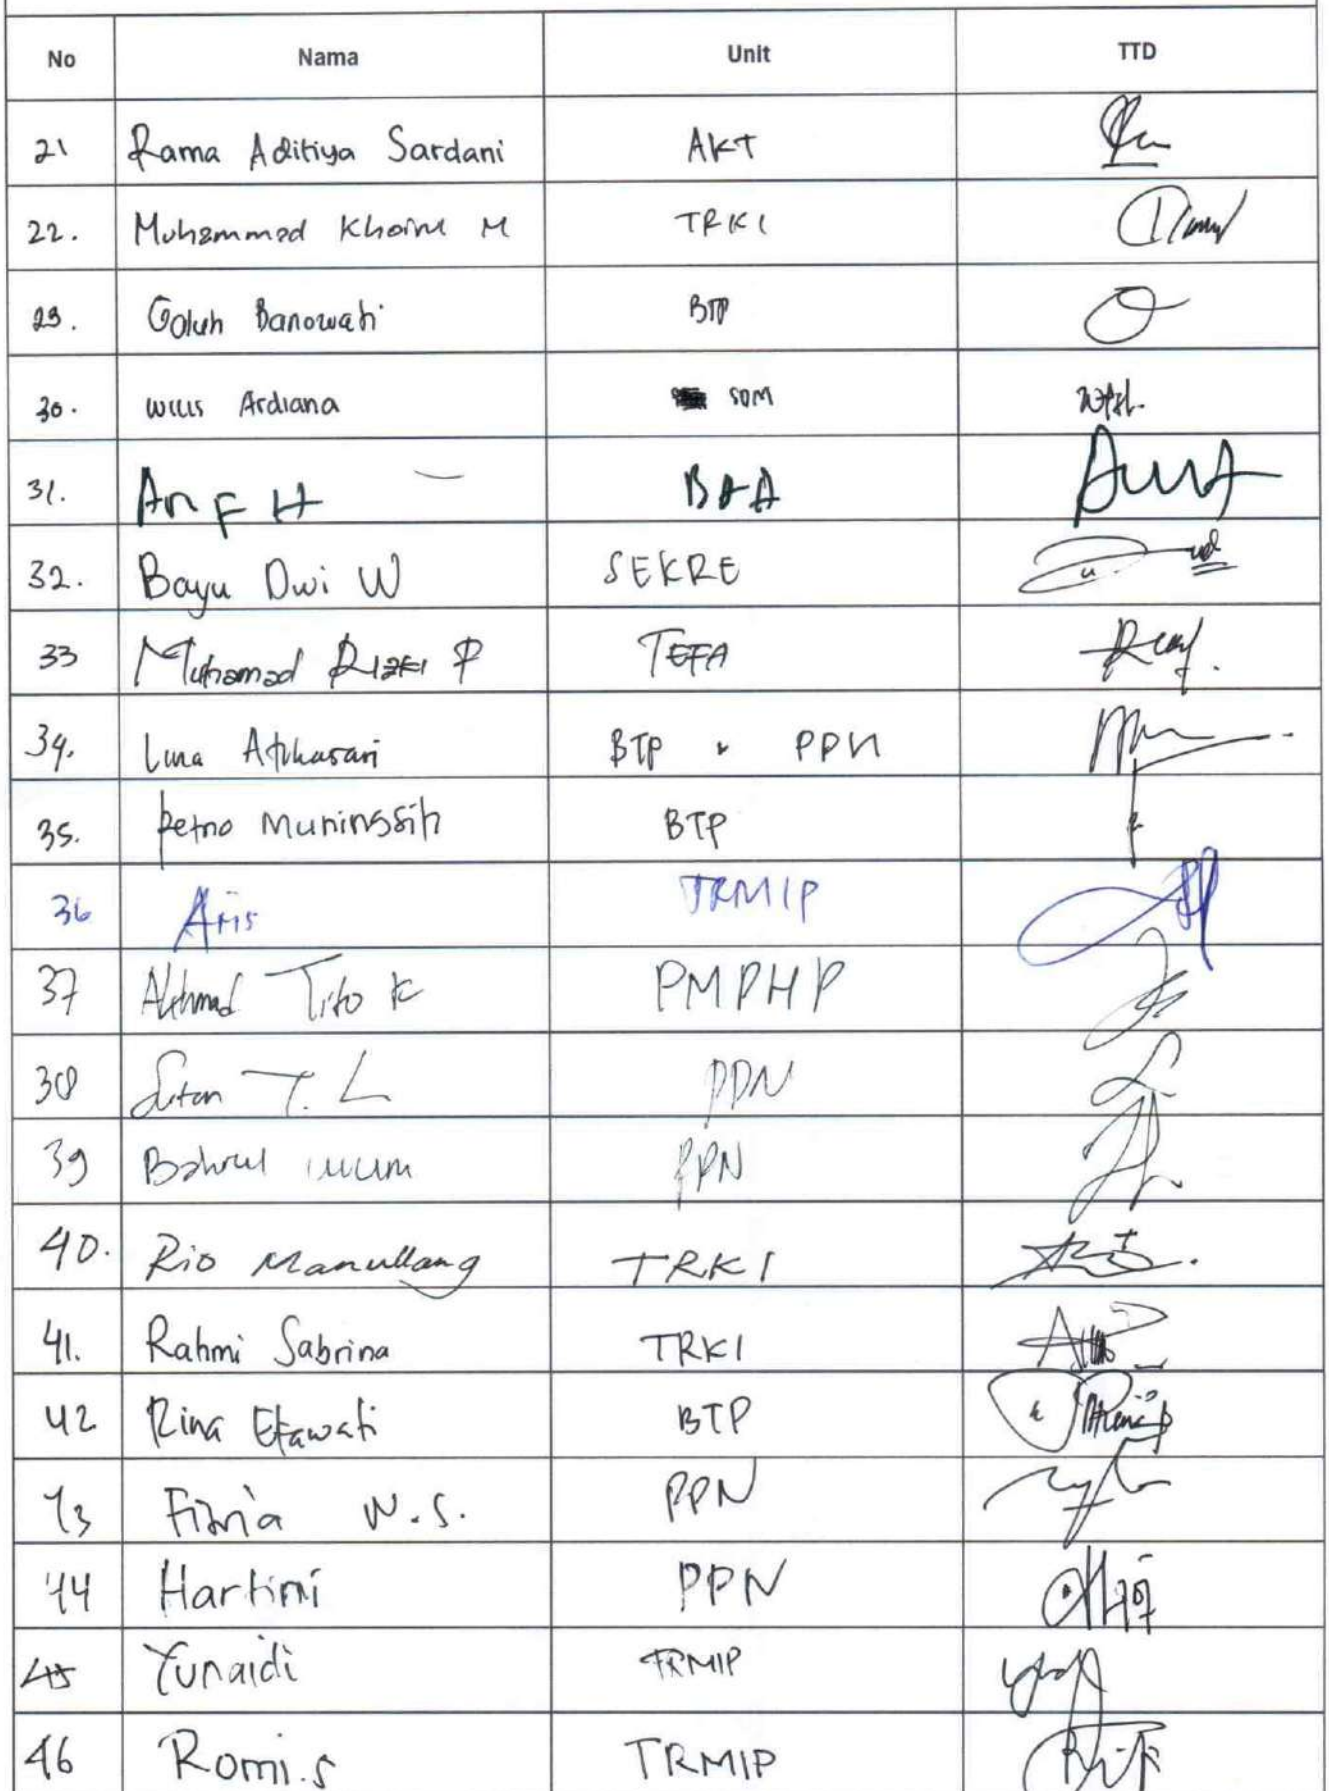 No Nama Unit TTD
21 Rama Aditiya Sardani AKT
22. Muhammad Khoirul M TRKI
23. Galuh Banowati BTP
30. Wilis Ardiana SDM
31. An F H BAA
32. Bayu Dwi W SEKRE
33 Muhamad Rizki P TEFA
34. BTP PPN
35. Retno Muningsih BTP
36 Aris TRMIP
37 Akhmad Tito K PMPHP
38 Sutan T. L PPN
39 Bahrul PPN
40. Rio Manullang TRKI
41. Rahmi Sabrina TRKI
42 Rina Ekawati BTP
43 Fitria N.S. PPN
44 Hartini PPN
45 Yunaidi TRMIP
46 Romi.s TRMIP